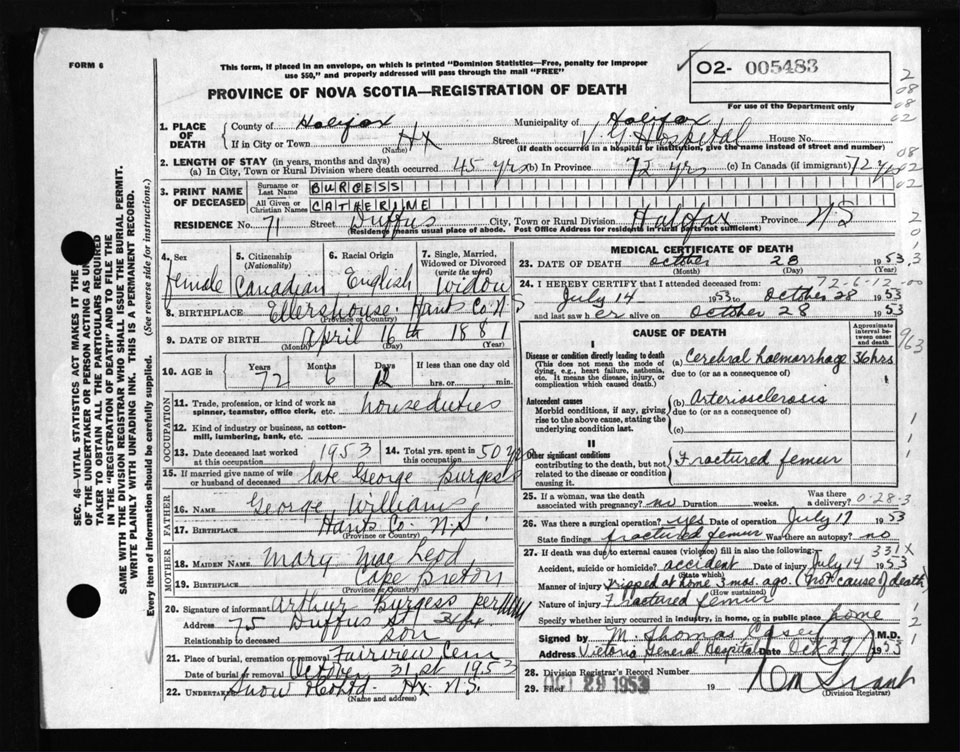 FORM 6
This form, if placed in an envelope, on which is printed "Dominion Statistics—Free, penalty for improper
use $50," and properly addressed will pass through the mail "FREE"
02- 005483
For use of the Department only
PROVINCE OF NOVA SCOTIA—REGISTRATION OF DEATH
1. PLACE OF DEATH County of Halifax Municipality of Halifax
If in City or Town Hx (Name) Street V. G. Hospital House No.
(If death occurred in a hospital or institution, give the name instead of street and number)
2. LENGTH OF STAY (in years, months and days)
(a) In City, Town or Rural Division where death occurred 45 yrs (b) In Province 72 yrs (c) In Canada (if immigrant) 72 yrs
3. PRINT NAME OF DECEASED Surname or Last Name BURGESS
All Given or Christian Names CATHERINE
RESIDENCE No. 71 Street Duffus City, Town or Rural Division Halifax Province N.S
(Residency means usual place of abode. Post Office Address for residents in rural parts not sufficient)
4. Sex female
5. Citizenship (Nationality) Canadian
6. Racial Origin English
7. Single, Married, Widowed or Divorced (write the word) Widow
8. BIRTHPLACE Ellershouse Hants Co. N.S
(Province or Country)
9. DATE OF BIRTH April 16th 1881
(Month) (Day) (Year)
10. AGE in Years 72 Months 6 Days 12 If less than one day
hrs. or min.
OCCUPATION
11. Trade, profession, or kind of work as spinner, teamster, office clerk, etc. houseduties
12. Kind of industry or business, as cotton-mill, lumbering, bank, etc.
13. Date deceased last worked at this occupation 1953 14. Total yrs. spent in this occupation 50 yrs
15. If married give name of wife or husband of deceased late George Burgess
FATHER
16. NAME George Williams
17. BIRTHPLACE Hants Co. N.S.
(Province or Country)
MOTHER
18. MAIDEN NAME Mary MacLeod
19. BIRTHPLACE Cape Breton
(Province or Country)
20. Signature of informant Arthur Burgess per
Address 75 Duffus St. Hfx.
Relationship to deceased son
21. Place of burial, cremation or removal Fairview Cem
Date of burial or removal October 31st 1953
22. Undertaker Snow Co Ltd. Hx N.S.
(Name and address)
MEDICAL CERTIFICATE OF DEATH
23. DATE OF DEATH October 28 1953
(Month) (Day) (Year)
72-6-12-00
24. I HEREBY CERTIFY that I attended deceased from:
July 14 1953 to October 28 1953
and last saw her alive on October 28 1953
CAUSE OF DEATH
Approximate interval between onset and death
I
Disease or condition directly leading to death
(This does not mean the mode of dying, e.g., heart failure, asthenia, etc. It means the disease, injury, or complication which caused death.)
(a) Cerebral haemorrhage 36 hrs
due to (or as a consequence of)
Antecedent causes
Morbid conditions, if any, giving rise to the above cause, stating the underlying condition last.
(b) Arteriosclerosis
due to (or as a consequence of)
(c)
II
Other significant conditions
contributing to the death, but not related to the disease or condition causing it.
Fractured femur
25. If a woman, was the death associated with pregnancy? no Duration weeks. Was there a delivery?
0-28-3
26. Was there surgical operation? yes Date of operation July 17 1953
State findings fractured femur Was there an autopsy? no
27. If death was due to external causes (violence) fill in also the following: 331X
Accident, suicide or homicide? accident Date of injury July 14 1953
(State which)
Manner of injury Tripped at home 3 mos. ago. (Not cause of death)
(How sustained)
Nature of injury Fractured femur
Specify whether injury occurred in industry, in home, or in public place home
Signed by M. Thomas Casey M.D.
Address Victoria General Hospital Date Oct 29 1953
28. Division Registrar's Record Number
29. Filed OCT 29 1953 19
(Division Registrar)
SEC. 46—VITAL STATISTICS ACT MAKES IT THE
OF THE UNDERTAKER OR PERSON ACTING AS UN
TAKER TO OBTAIN ALL THE PARTICULARS REQUIRED
IN THE "REGISTRATION OF DEATH" AND TO FILE THE
SAME WITH THE DIVISION REGISTRAR WHO SHALL ISSUE THE BURIAL PERMIT.
WRITE PLAINLY WITH UNFADING INK. THIS IS A PERMANENT RECORD.
Every item of information should be carefully supplied. (See reverse side for instructions.)